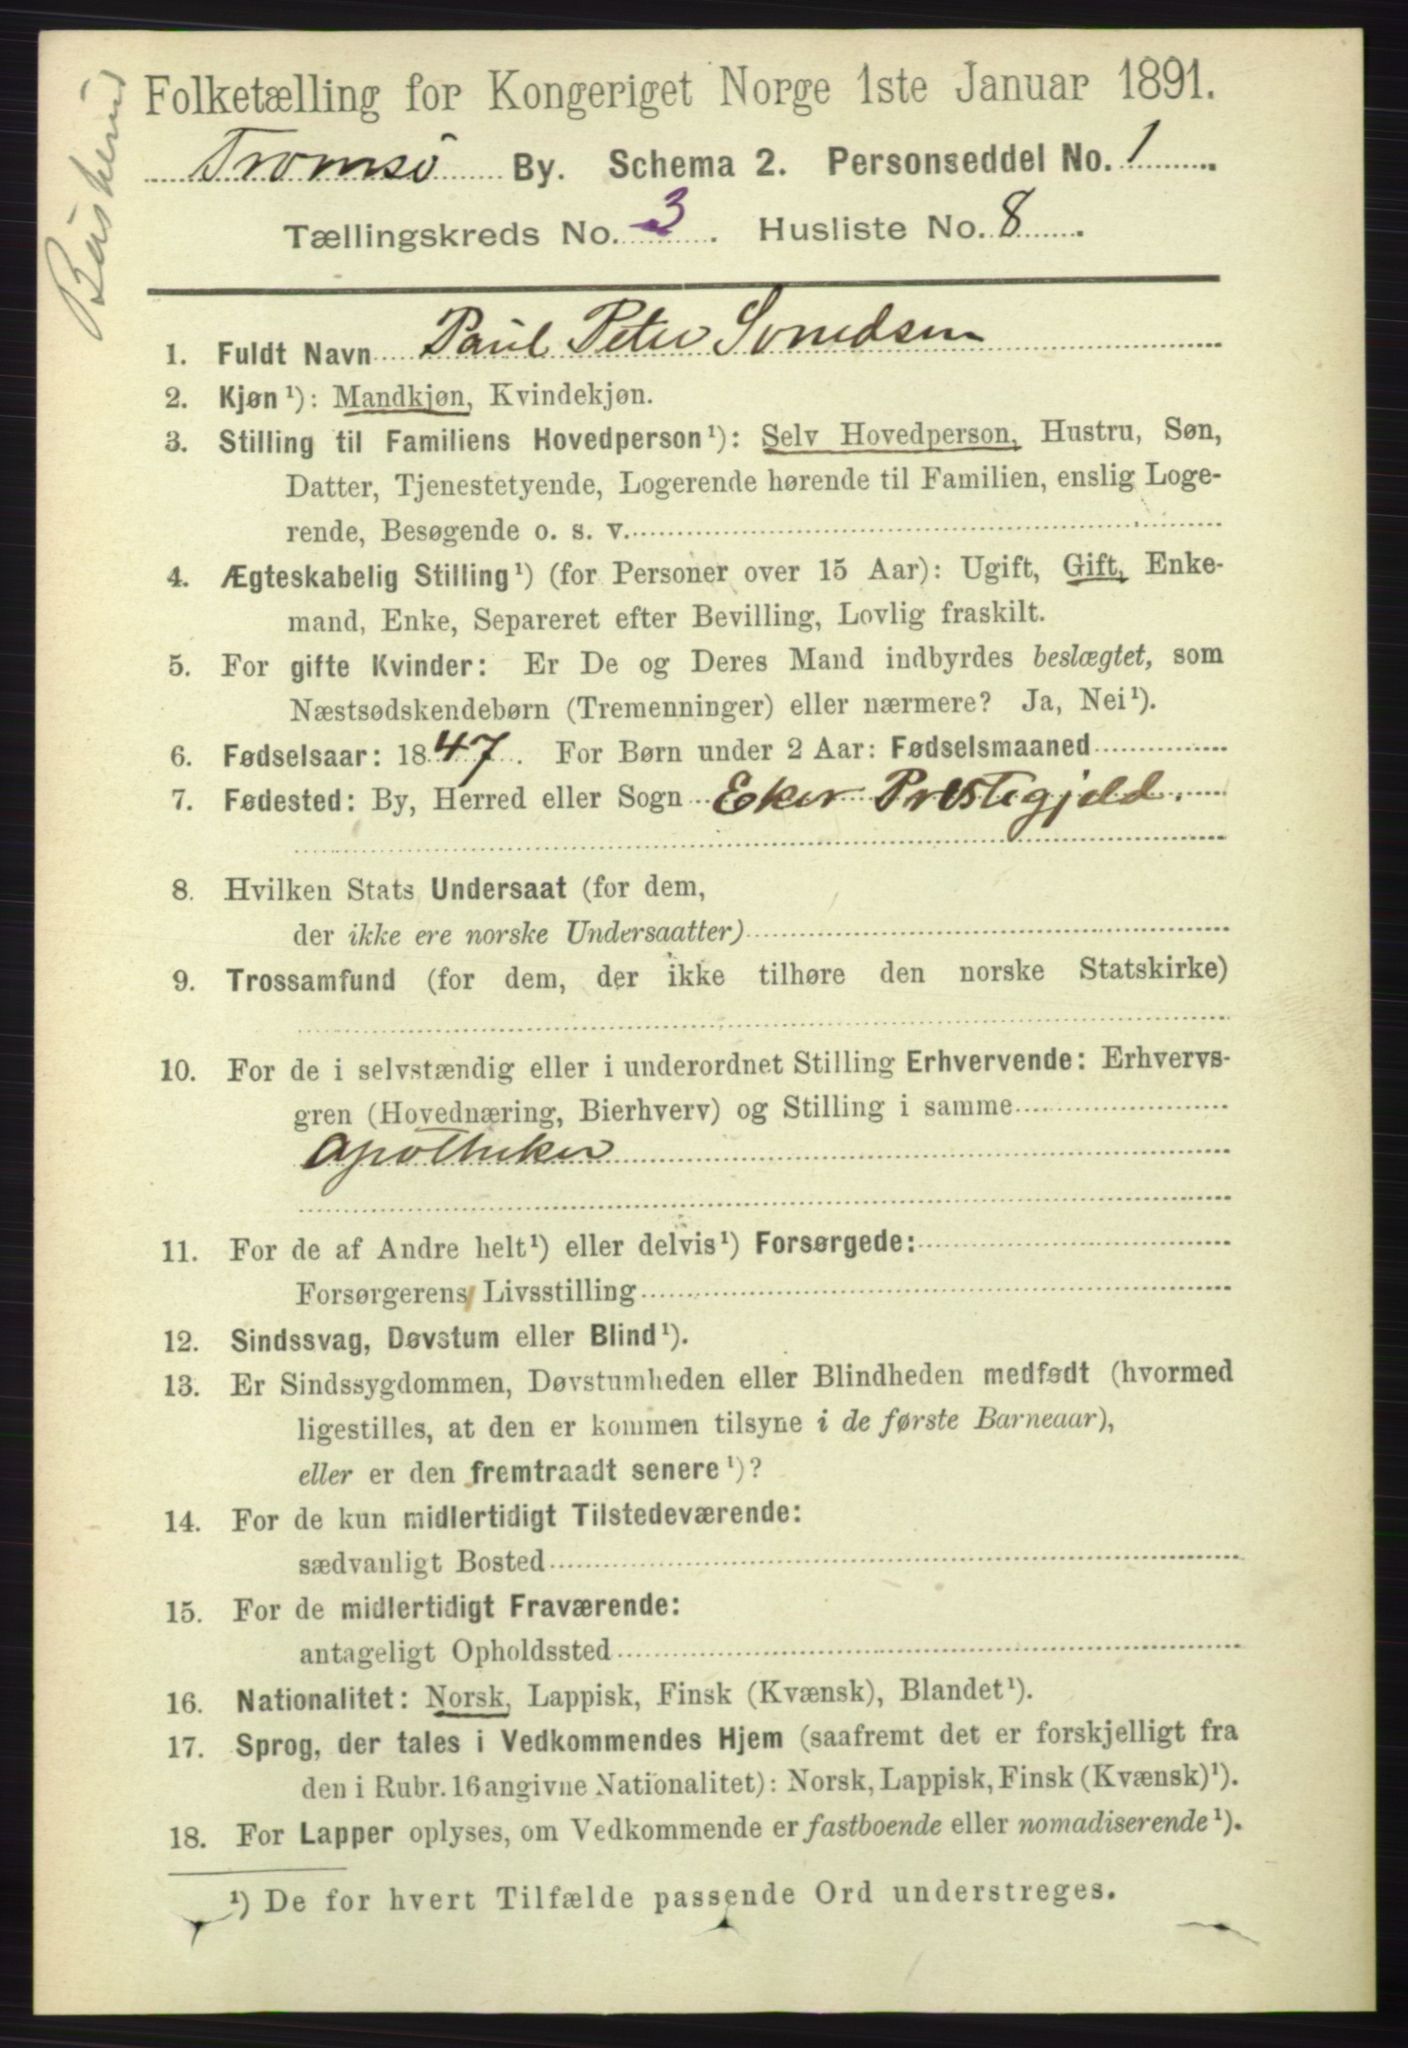 Buskerud
Folketælling for Kongeriget Norge 1ste Januar 1891.
Tromsö By. Schema 2. Personseddel No. 1
Tællingskreds No. 3. Husliste No. 8.
1. Fuldt Navn Paul Peter Svendsen
2. Kjøn¹): Mandkjøn, Kvindekjøn.
3. Stilling til Familiens Hovedperson¹): Selv Hovedperson, Hustru, Søn,
Datter, Tjenestetyende, Logerende hørende til Familien, enslig Loge-
rende, Besøgende o. s. v.
4. Ægteskabelig Stilling¹) (for Personer over 15 Aar): Ugift, Gift, Enke-
mand, Enke, Separeret efter Bevilling, Lovlig fraskilt.
5. For gifte Kvinder: Er De og Deres Mand indbyrdes beslægtet, som
Næstsødskendebørn (Tremenninger) eller nærmere? Ja, Nei¹).
6. Fødselsaar: 1847. For Børn under 2 Aar: Fødselsmaaned
7. Fødested: By, Herred eller Sogn Eker Prestegjeld.
8. Hvilken Stats Undersaat (for dem,
der ikke ere norske Undersaatter)
9. Trossamfund (for dem, der ikke tilhøre den norske Statskirke)
10. For de i selvstændig eller i underordnet Stilling Erhvervende: Erhvervs-
gren (Hovednæring, Bierhverv) og Stilling i samme
Apotheker
11. For de af Andre helt¹) eller delvis¹) Forsørgede:
Forsørgerens Livsstilling
12. Sindssvag, Døvstum eller Blind¹).
13. Er Sindssygdommen, Døvstumheden eller Blindheden medfødt (hvormed
ligestilles, at den er kommen tilsyne i de første Barneaar),
eller er den fremtraadt senere¹)?
14. For de kun midlertidigt Tilstedeværende:
sædvanligt Bosted
15. For de midlertidigt Fraværende:
antageligt Opholdssted
16. Nationalitet: Norsk, Lappisk, Finsk (Kvænsk), Blandet¹).
17. Sprog, der tales i Vedkommendes Hjem (saafremt det er forskjelligt fra
den i Rubr. 16 angivne Nationalitet): Norsk, Lappisk, Finsk (Kvænsk)¹).
18. For Lapper oplyses, om Vedkommende er fastboende eller nomadiserende¹).
¹) De for hvert Tilfælde passende Ord understreges.